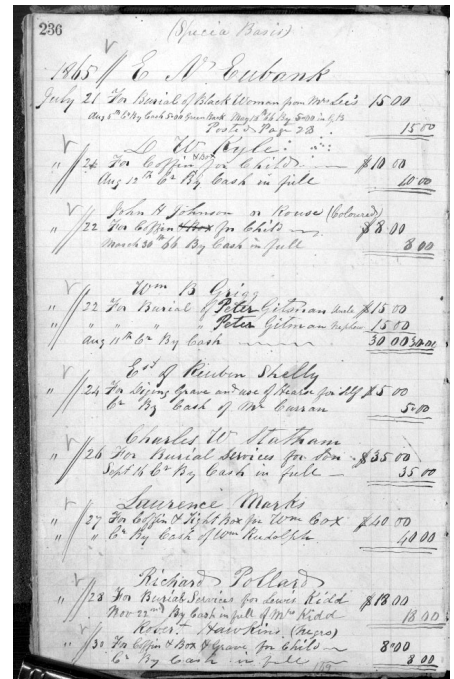 236
(Specia Basis)
1865 // E N. Eubank
July 21 For Burial of Black Woman from Mrs Lee's 15 00
Aug 5th Cr By Cash 5.00 Green Back May 18th 66 By 5.00 in
Posted Page 23 15 00
D W Kyle
" // 21 For Coffin & Box for Child $10.00
Aug 12th Cr By Cash in full 10.00
John H Johnson or Rouse (Coloured)
" // 22 For Coffin & Box for Child $8.00
March 30th 66 By Cash in full 8 00
Wm B Grigg
" // 22 For Burial of Peter Gitsman Uncle $15 00
" // " " " Peter Gitman Nephew 15 00
Aug 11th Cr By Cash 30 00 30.00
Est of Reuben Shelly
" // 24 For Diging Grave and use of Hearse for self $5 00
Cr By Cash of Mr Curran 5.00
Charles W Statham
" // 26 For Burial Services for Son $35 00
Sept 16 Cr By Cash in full 35 00
Laurence Marks
" // 27 For Coffin & Tight Box for Wm Cox $40 00
" // " Cr By Cash of Wm Rudolph 40 00
Richard Pollard
" // 28 For Burial Services for Lewis Kidd $18 00
Nov 22nd By Cash in full of Mrs Kidd 18 00
Robert Hawkins (negro)
" // 30 For Coffin & Box & Grave for Child 8 00
Cr By Cash in full 8 00